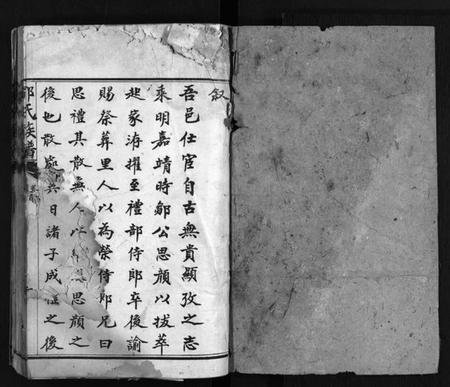 敘
吾邑仕宦自古無貴顯攷之志
乘明嘉靖時鄒公思顏以拔萃
起家洊擢至禮部侍郎卒後諭
賜祭葬里人以為榮侍郎兄曰
思禮其散無人思顏之
後也散處日諸子成之後
氏族譜